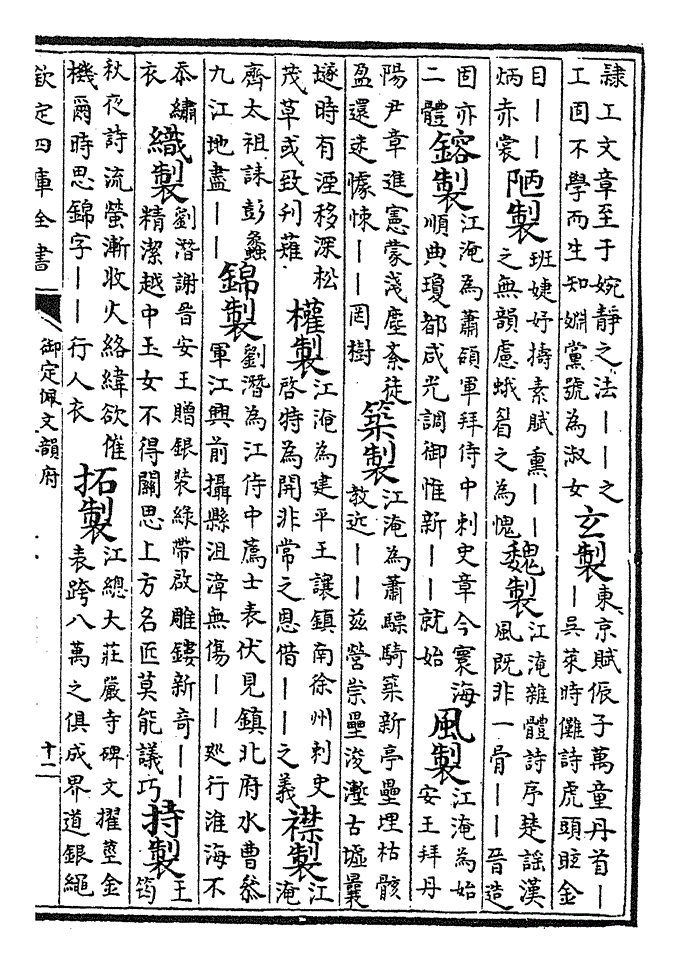 隷工文章至于婉靜之法——之
工固不學而生知婣黨號為淑女
玄製
東京賦侲子萬童丹首—
—吳萊時儺詩虎頭眩金
目——
炳赤裳
陋製
班婕妤擣素賦熏——
之無韻慮蛾眉之為愧
魏製
江淹雜體詩序楚謡漢
風既非一骨——晉造
固亦
二體
鎔製
江淹為蕭領軍拜侍中刺史章今寰海
順典瓊都咸光調御惟新——就始
風製
江淹為始
安王拜丹
陽尹章進憲蒙淺塵紊徒
盈還迷懅悚——罔樹
築製
江淹為蕭驃騎築新亭壘埋枯骸
教近——兹營崇壘浚壍古墟曩
墜時有湮移深松
茂草或致刋薙
權製
江淹為建平王讓鎮南徐州刺史
啓特為開非常之恩借——之義
襟製
江
淹
齊太祖誄彭蠡
九江地盡——
錦製
劉潛為江侍中薦士表伏見鎮北府水曹叅
軍江興前攝縣沮漳無傷——廵行淮海不
忝繡
衣
織製
劉潛謝晉安王贈銀裝綠帶啟雕鏤新奇——
精潔越中玉女不得關思上方名匠莫能議巧
持製
王
筠
秋夜詩流螢漸收火絡緯欲催
機爾時思錦字——行人衣
拓製
江總大莊嚴寺碑文擢莖金
表跨八萬之俱成界道銀繩
欽定四庫全書
御定佩文韻府
十二